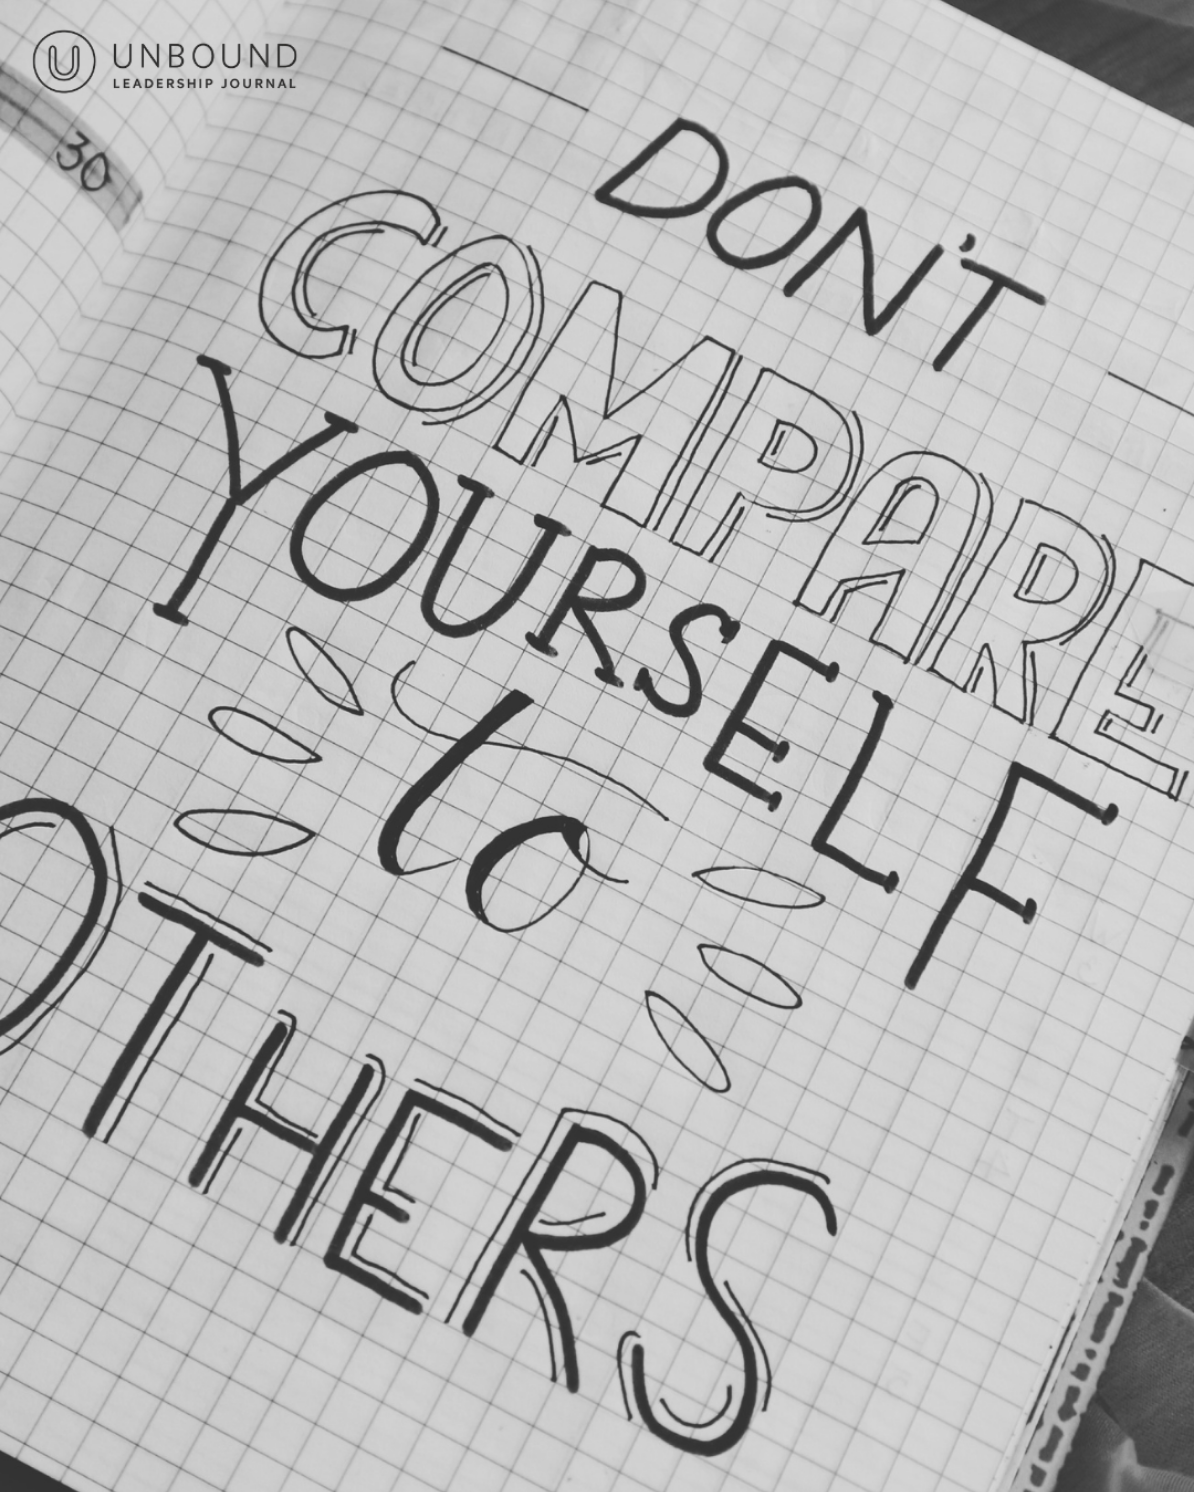 UNBOUND
LEADERSHIP JOURNAL
30
DON'T
COMPARE
YOURSELF
to
OTHERS